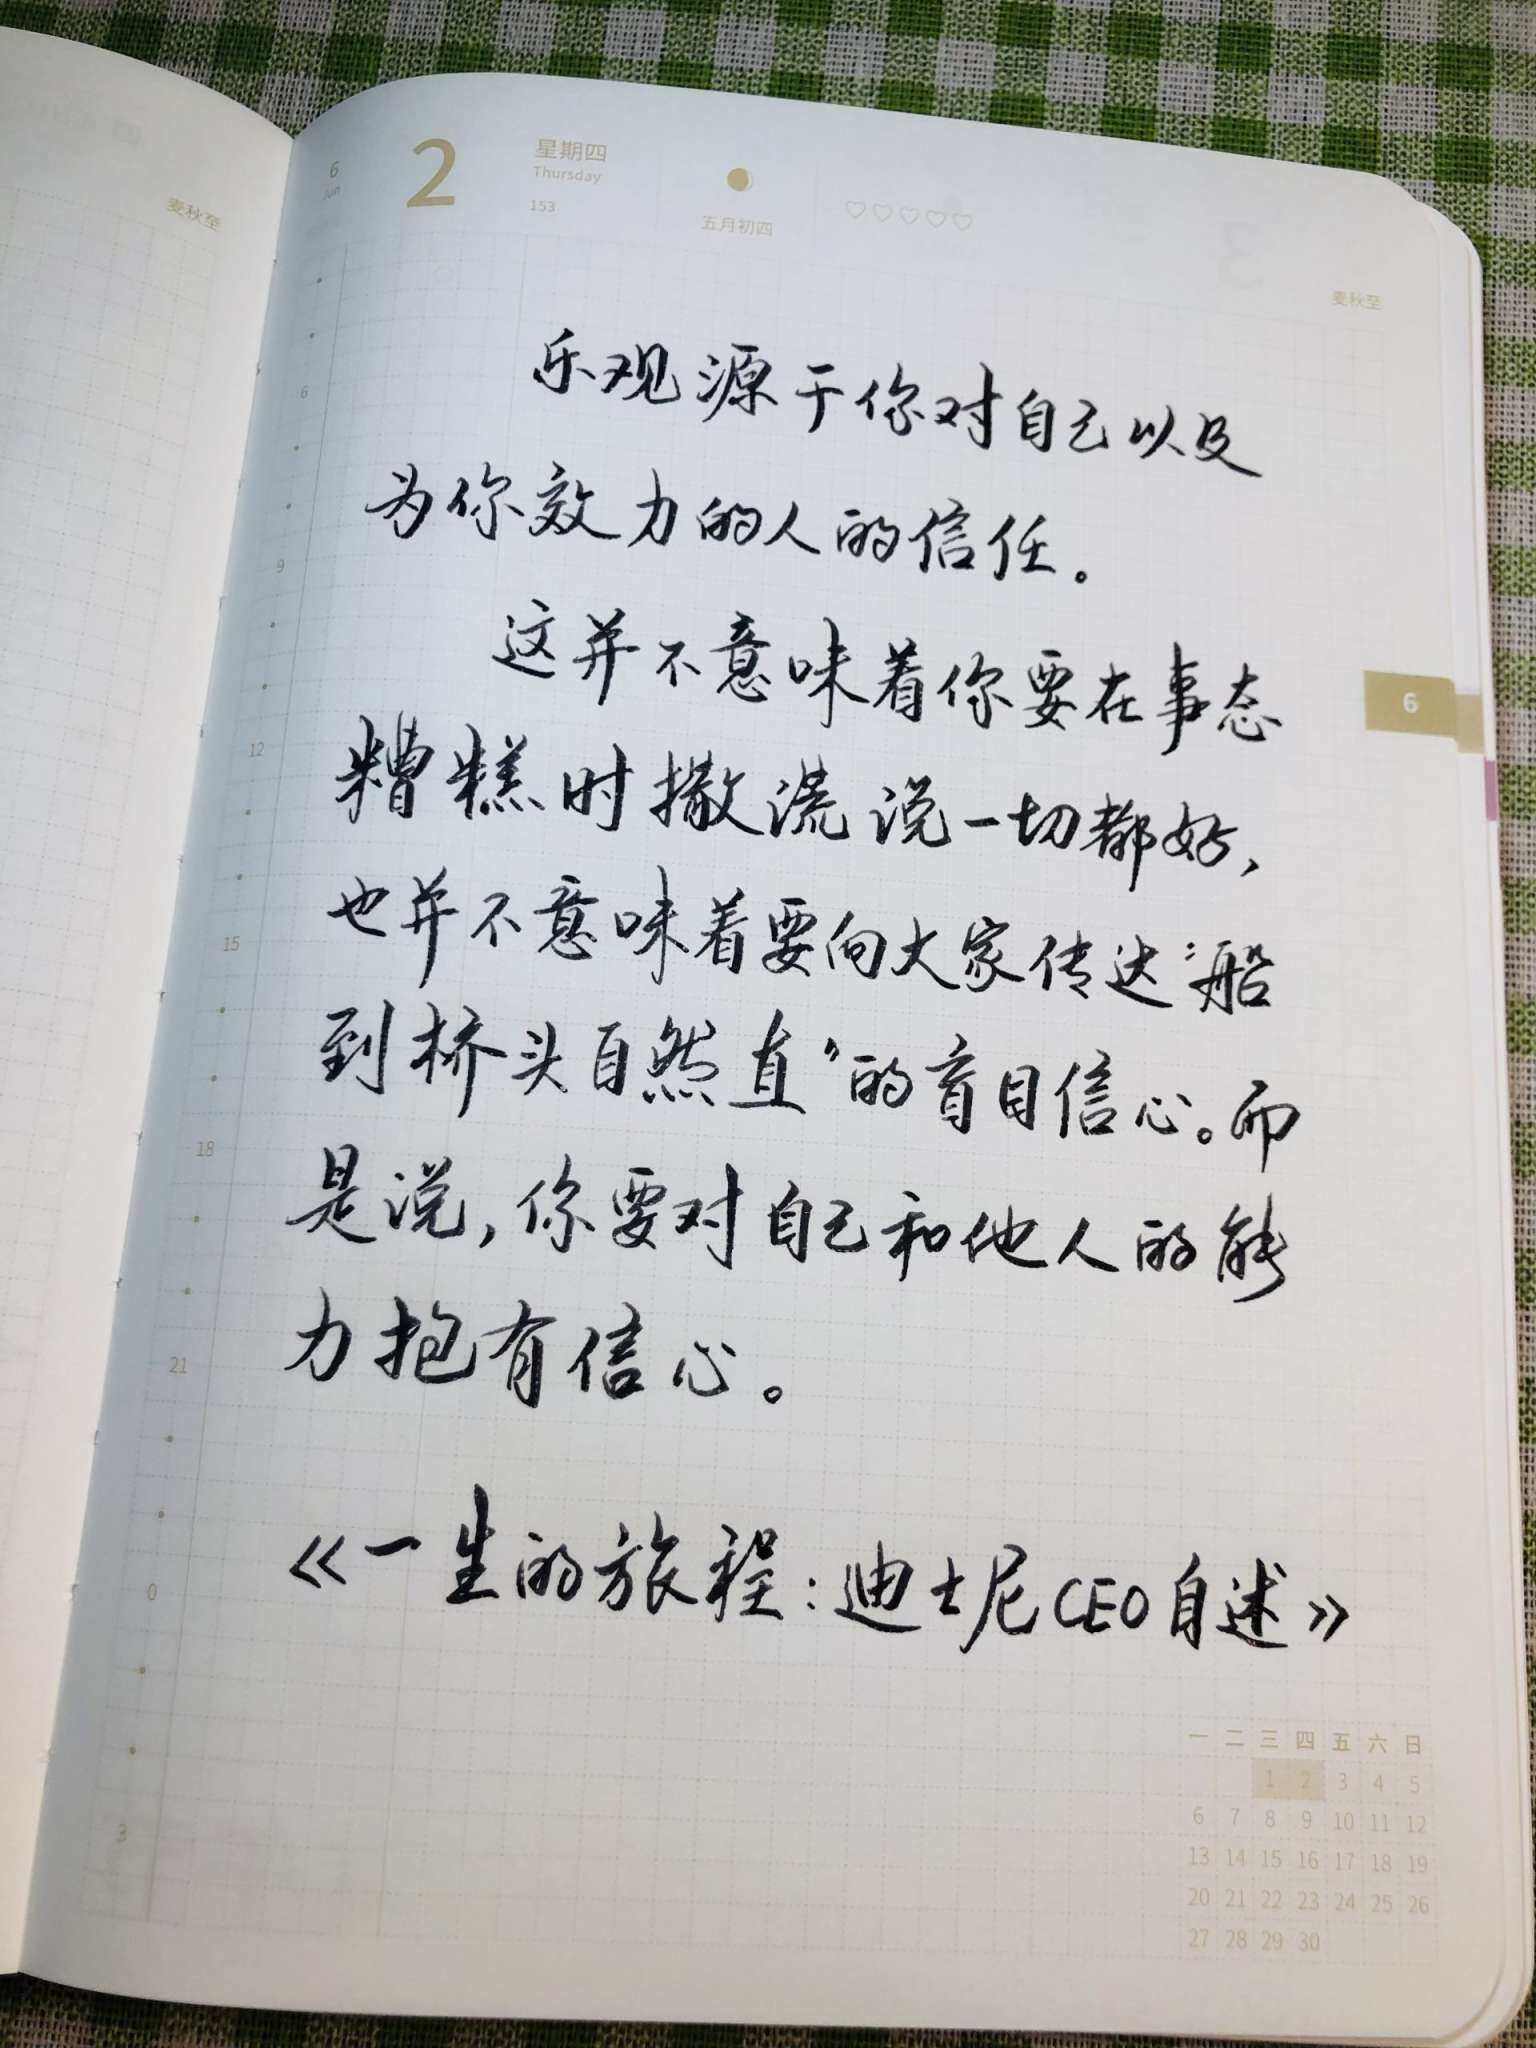 麦秋至
6
Jun
2
星期四
Thursday
153
五月初四
麦秋至
乐观源于你对自己以及
为你效力的人的信任。
这并不意味着你要在事态
糟糕时撒谎说一切都好,
也并不意味着要向大家传达“船
到桥头自然直”的盲目信心。而
是说,你要对自己和他人的能
力抱有信心。
《一生的旅程:迪士尼CEO自述》
6
6
9
12
15
18
21
0
3
一 二 三 四 五 六 日
1 2 3 4 5
6 7 8 9 10 11 12
13 14 15 16 17 18 19
20 21 22 23 24 25 26
27 28 29 30